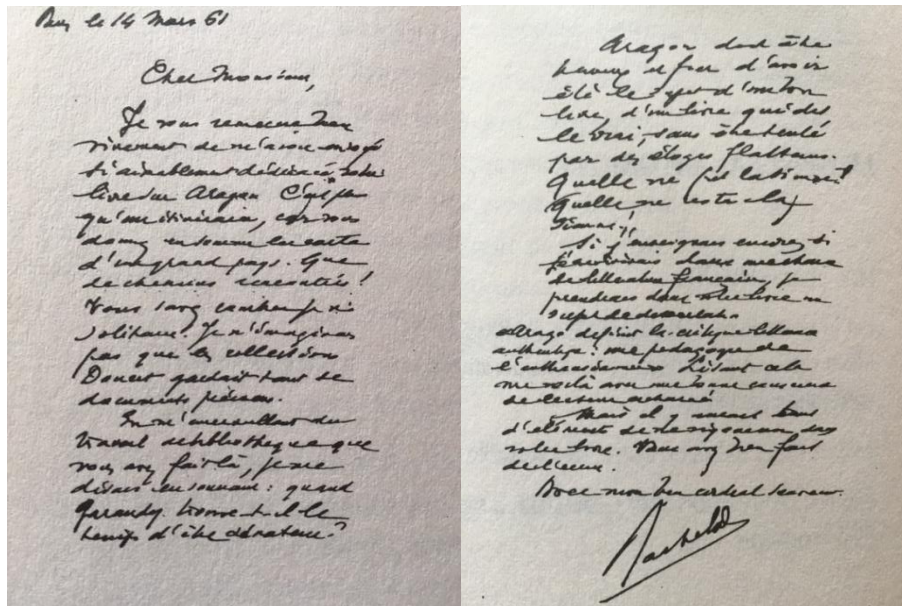 le 14 Mars 61
Cher Monsieur,
Je vous remercie bien
vivement de m'avoir envoyé
si aimablement dédicacé, votre
livre sur Aragon C'est plus
qu'un itinéraire, car vous
donnez en somme la carte
d'un grand pays. Que
de chemins
Vous savez combien je vis
solitaire. Je n'imaginais
pas que la collection
Doucet gardait tant de
documents précieux.
En m'émerveillant du
travail de bibliothèque que
vous avez fait là, je me
disais en souriant : quand
Garaudy trouve-t-il le
temps d'être sénateur ?
Aragon doit être
heureux et fier d'avoir
été le sujet d'un bon
livre, d'un livre qui dit
le vrai, sans être tenté
par des éloges flatteurs.
Quelle ne fut la timidité
Quelle ne reste
Si j'enseignais encore, si
j'écrivais dans une chaire
de littérature française, je
prendrais dans votre livre un
sujet de dissertation
Aragon définit la critique littéraire
authentique : une pédagogie de
l'enthousiasme Lisant cela
me voilà avec une bonne conscience
de lecteur
Mais il y a encore tant
d'éléments de dans
votre livre. Vous avez bien fait
de l'écrire.
mon bien cordial souvenir.
Bachelard